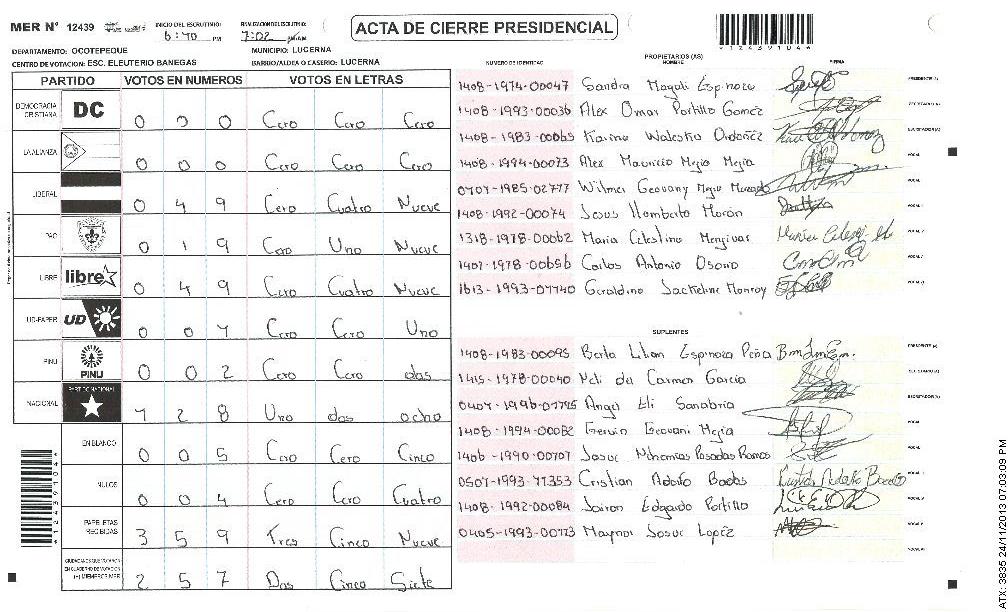 MER N° 12439 INICIO DEL ESCRUTINIO: 6:40 PM 7:02 ACTA DE CIERRE PRESIDENCIAL
DEPARTAMENTO: OCOTEPEQUE MUNICIPIO: LUCERNA
CENTRO DE VOTACION: ESC. ELEUTERIO BANEGAS BARRIO/ALDEA O CASERIO: LUCERNA
PARTIDO VOTOS EN NUMEROS VOTOS EN LETRAS
DEMOCRACIA CRISTIANA DC 0 0 0 Cero Cero Cero
LA ALIANZA 0 0 0 Cero Cero Cero
LIBERAL 0 4 9 Cero Cuatro Nueve
PAC 0 1 9 Cero Uno Nueve
LIBRE libre 0 4 9 Cero Cuatro Nueve
UD-FAPER UD 0 0 1 Cero Cero Uno
PINU PINU 0 0 2 Cero Cero dos
NACIONAL PARTIDO NACIONAL 1 2 8 Uno dos ocho
EN BLANCO 0 0 5 Cero Cero Cinco
NULOS 0 0 4 Cero Cero Cuatro
PAPELETAS RECIBIDAS 3 5 9 Tres Cinco Nueve
2 5 7 Dos Cinco Siete
NUMERO DE IDENTIDAD PROPIETARIOS (AS) NOMBRE FIRMA
1408-1974-00047 Sandra Magali Espinoza
1408-1993-00036 Alex Omar Portillo Gomez
1408-1983-00065 Karina Walestia Ordoñez
1408-1994-00073 Alex Mauricio Mejia Mejia
0707-1985-02777 Wilmer Geovany Mejia
1408-1992-00074 Jesus Humberto Morán
1318-1978-00062 Maria Celestina Menjivar
1407-1978-00656 Carlos Antonio Osorio
1613-1993-07740 Geraldina Jackeline Monroy
SUPLENTES
1408-1983-00095 Berta Lilian Espinoza Peña
1415-1978-00040 Neli del Carmen Garcia
0407-1996-01795 Angel Eli Sanabria
1408-1994-00082 Gervin Geovani Mejia
1406-1990-00107 Josue Nehemias Posadas Ramos
0507-1993-11353 Cristian Adolfo Bodas
1408-1992-00084 Jairon Edgardo Portillo
0405-1993-00073 Maynor Josue Lopéz
ATX: 3835 24/11/2013 07:03:09 PM